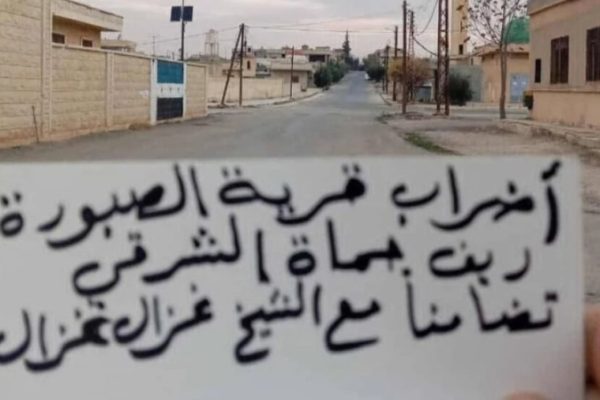 أضراب قرية الصبورة
ريف حماة الشرقي
تضامناً مع الشيخ غزال غزال